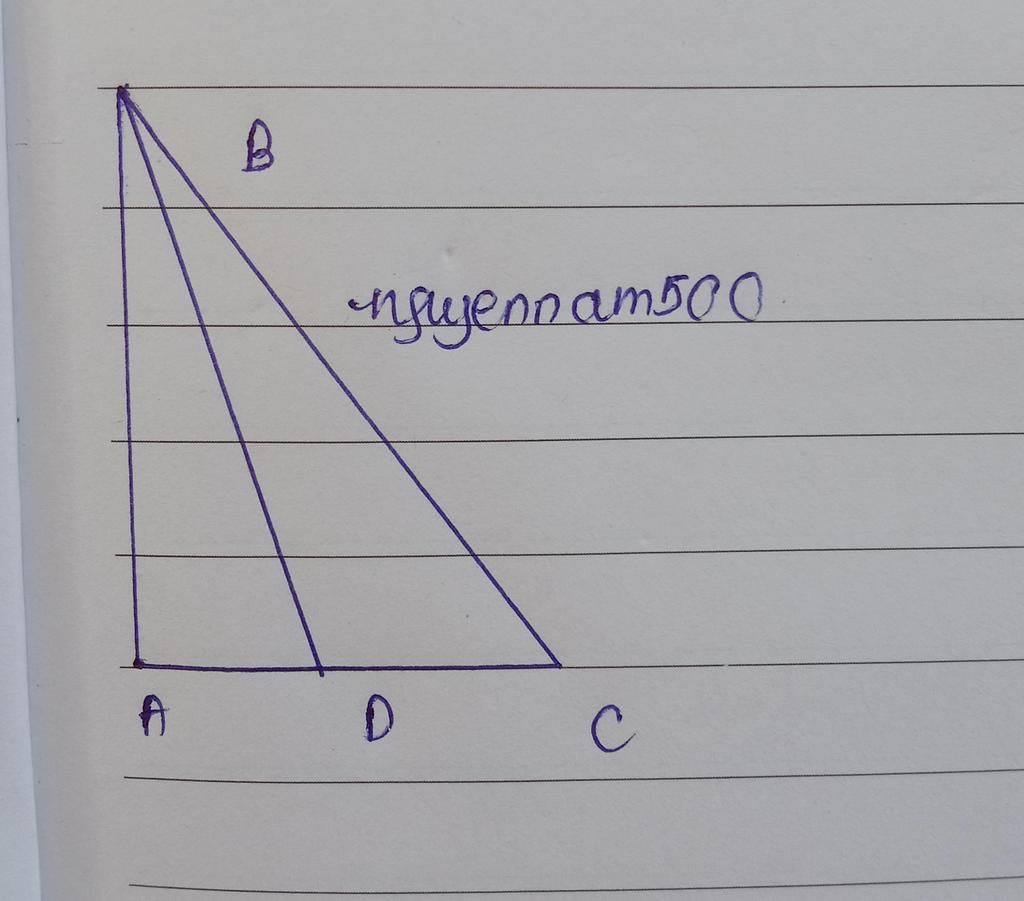 B
nguyennam500
A D C